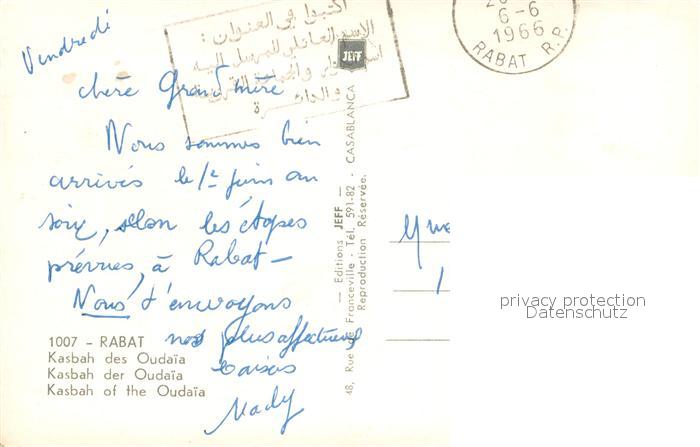 Vendredi
chère Grand'mère
Nous sommes bien
arrivés le 1er juin au
soir, selon les étapes
prévues, à Rabat –
Nous t'envoyons
nos plus affectueux
baisers
Mady
1007 - RABAT
Kasbah des Oudaïa
Kasbah der Oudaïa
Kasbah of the Oudaïa
— Editions JEFF —
48, Rue de Franceville - Tél. 591-82 - CASABLANCA
Reproduction Réservée.
JEFF
اكتبوا في العنوان :
الاسم العائلي للمرسل إليه
والدائرة
6-6
1966
RABAT R.P.
privacy protection
Datenschutz